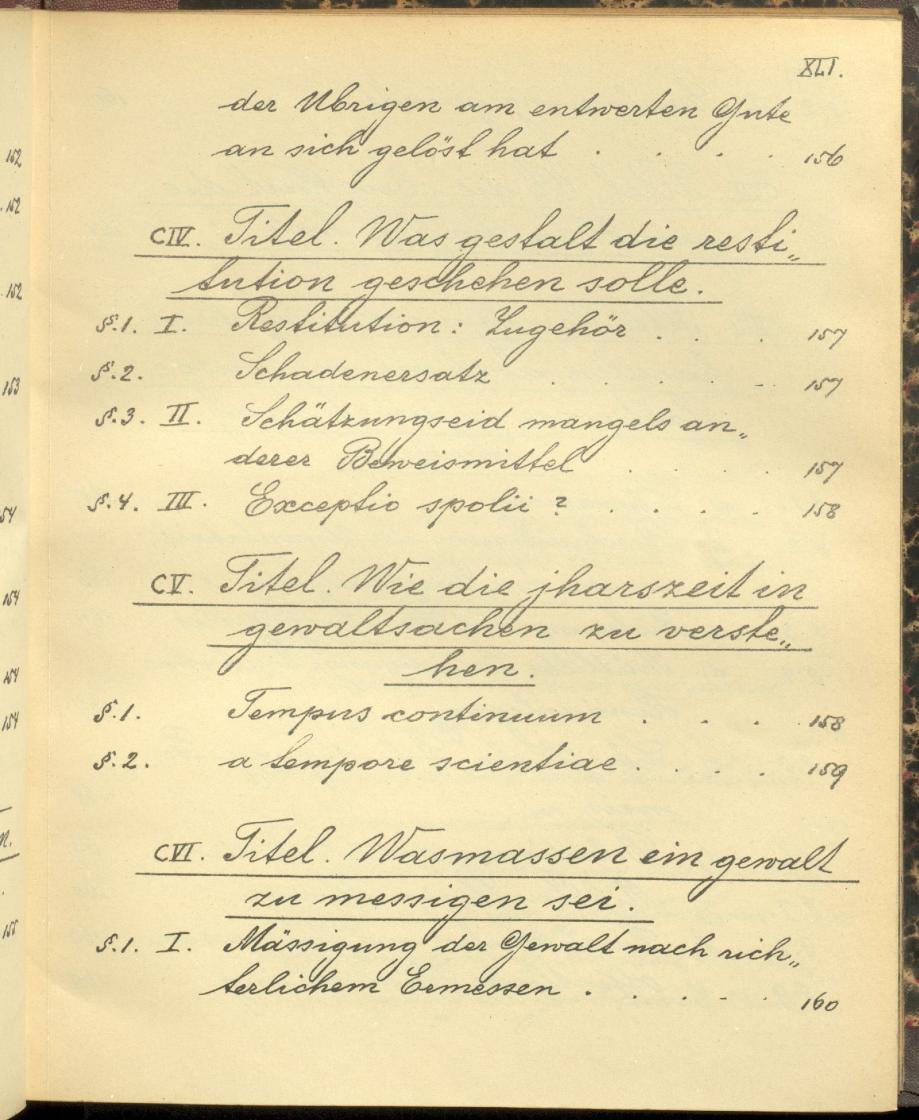 XLI.
der Übrigen am entwerten Gute
an sich gelöst hat . . . . 156
CIV. Titel. Was gestalt die resti„
tution geschehen solle.
§.1. I. Restitution: Zugehör . . . 157
§.2. Schadenersatz . . . . . 157
§.3. II. Schätzungseid mangels an„
derer Beweismittel . . . . 157
§.4. III. Exceptio spolii? . . . . 158
CV. Titel. Wie die jharszeit in
gewaltsachen zu verste„
hen.
§.1. Tempus continuum . . . 158
§.2. a tempore scientiae . . . . 159
CVI. Titel. Wasmassen ein gewalt
zu messigen sei.
§.1. I. Mässigung der Gewalt nach rich„
terlichem Ermessen . . . . . 160
152
152
152
153
154
154
154
154
n.
155